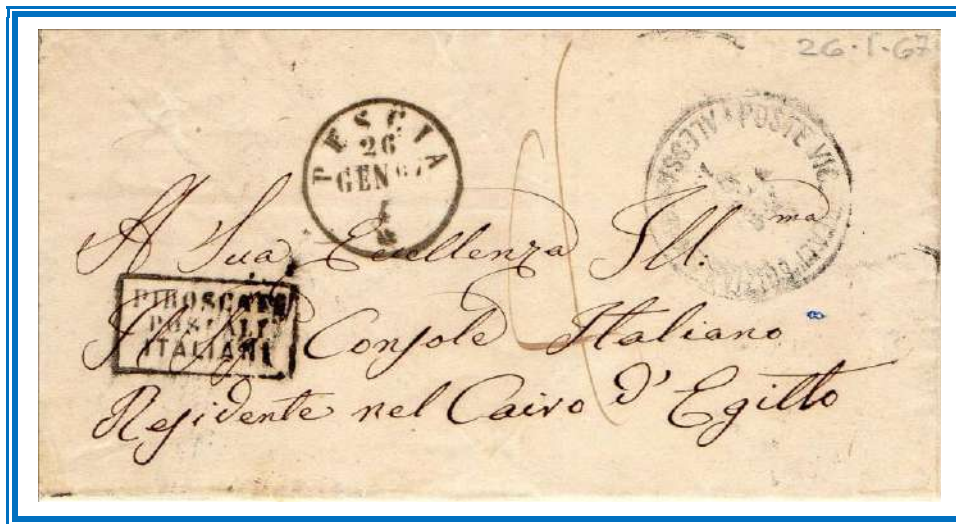 26·1·67
PESCIA
26
GEN 67
POSTE VIC
ALESS
A Sua Eccellenza Ill.ma
PIROSCAFI
POSTALI
ITALIANI
Il Console Italiano
Residente nel Cairo d'Egitto